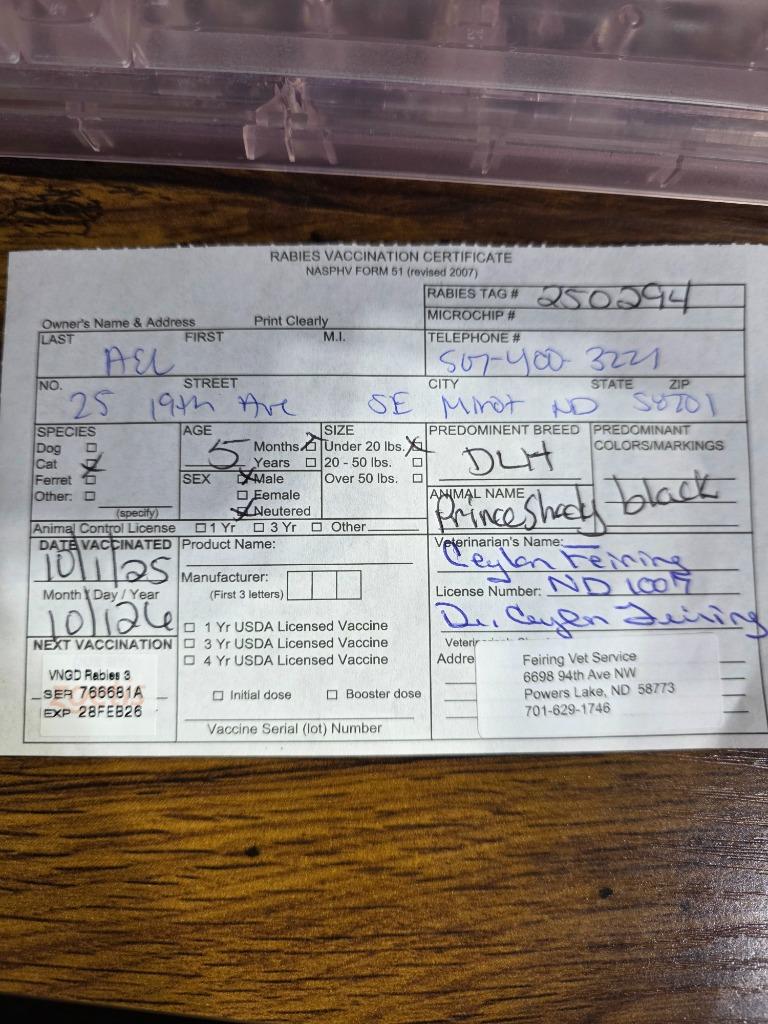 RABIES VACCINATION CERTIFICATE
NASPHV FORM 51 (revised 2007)
RABIES TAG # 250294
MICROCHIP #
Owner's Name & Address Print Clearly
LAST FIRST M.I. TELEPHONE #
507-400-3221
NO. STREET CITY STATE ZIP
25 19th Ave SE Minot ND 58701
SPECIES
Dog
Cat
Ferret
Other:
(specify)
AGE
5 Months
Years
SEX Male
Female
Neutered
SIZE
Under 20 lbs.
20 - 50 lbs.
Over 50 lbs.
PREDOMINENT BREED
DLH
PREDOMINANT
COLORS/MARKINGS
black
ANIMAL NAME
Prince Shady
Animal Control License 1 Yr 3 Yr Other
DATE VACCINATED
10/1/25
Month / Day / Year
10/1/26
NEXT VACCINATION
VNGD Rabies 3
SER 766681A
EXP 28FEB26
Product Name:
Manufacturer:
(First 3 letters)
1 Yr USDA Licensed Vaccine
3 Yr USDA Licensed Vaccine
4 Yr USDA Licensed Vaccine
Initial dose Booster dose
Vaccine Serial (lot) Number
Veterinarian's Name:
Ceylon Feiring
License Number: ND 1007
Dr. Ceylon Feiring
Addre
Feiring Vet Service
6698 94th Ave NW
Powers Lake, ND 58773
701-629-1746